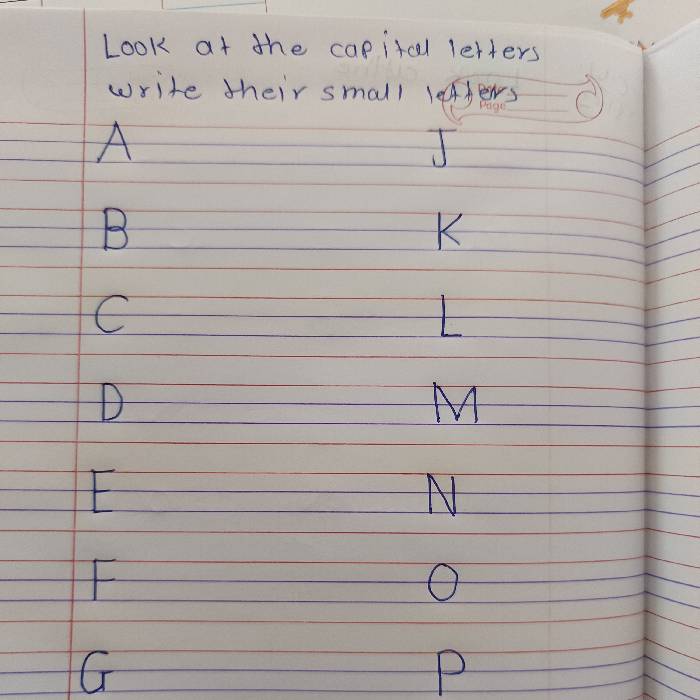 Look at the capital letters
write their small letters
Page
A J
B K
C L
D M
E N
F O
G P